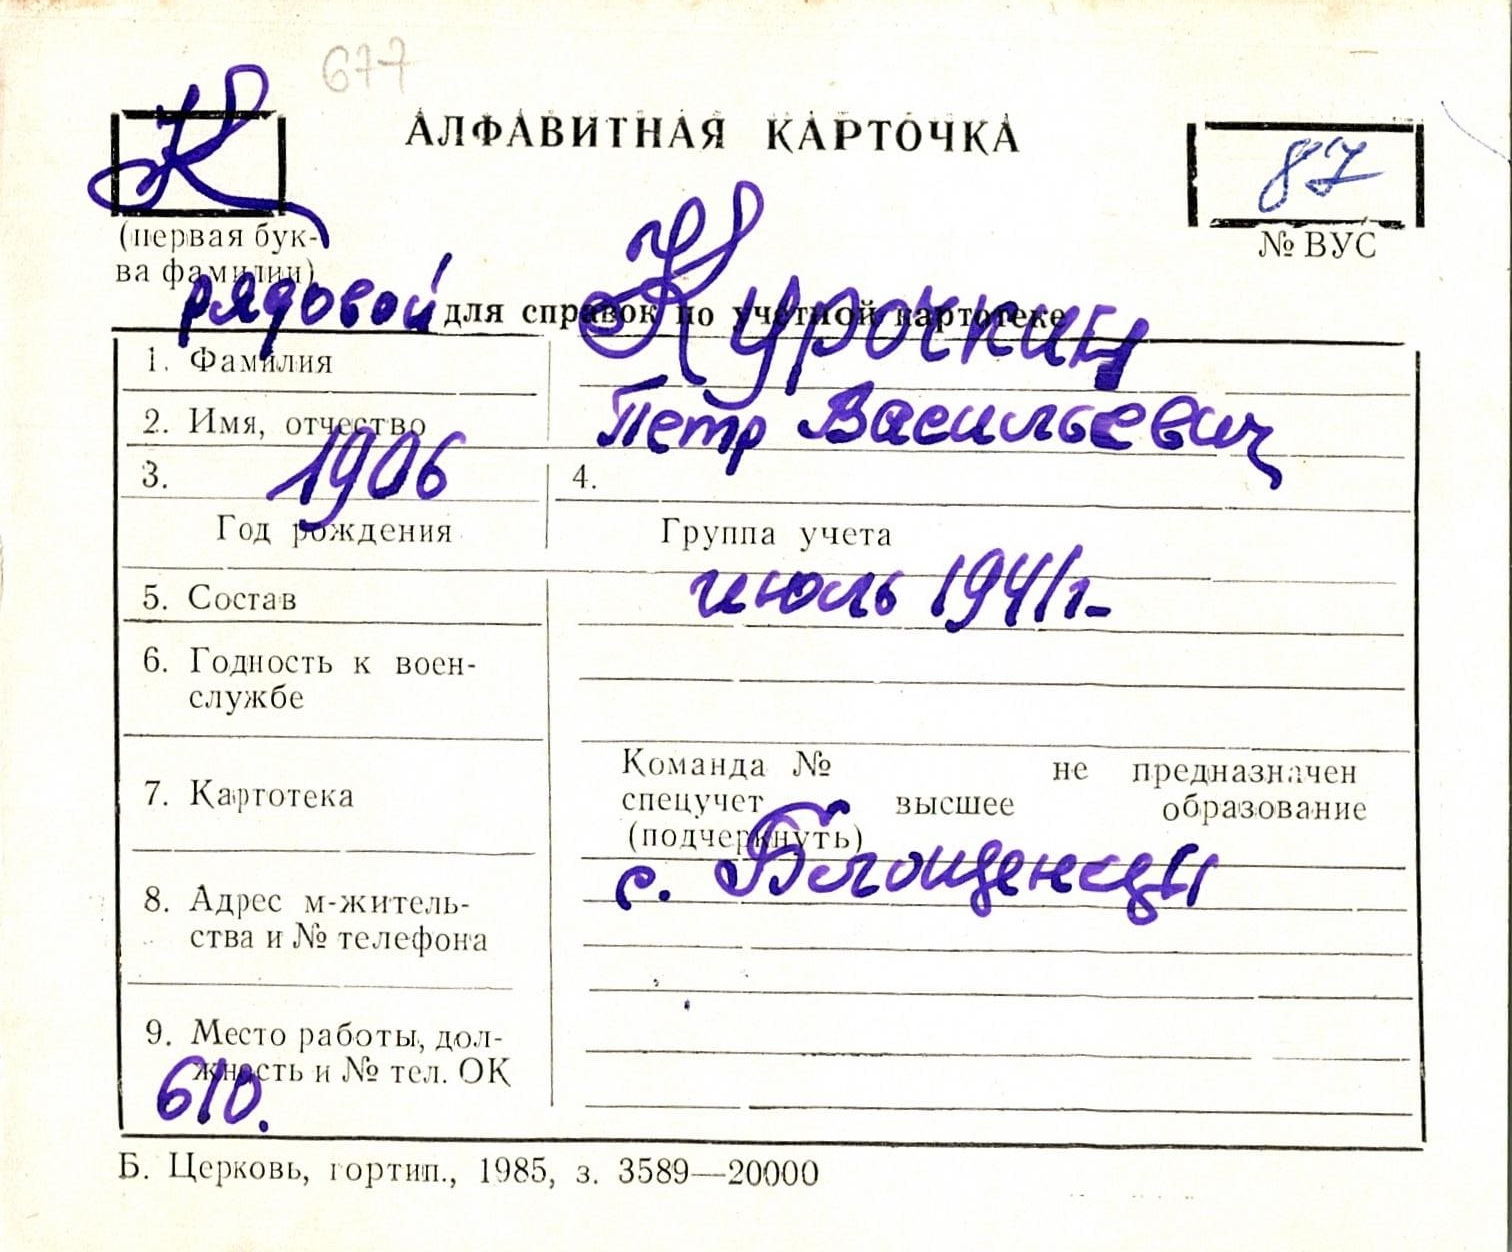 677
К
АЛФАВИТНАЯ КАРТОЧКА
87
(первая бук-
ва фамилии)
№ ВУС
рядовой
для справок по учетной картотеке
1. Фамилия Курочкин
2. Имя, отчество Петр Васильевич
3. 1906 4.
Год рождения Группа учета
5. Состав июль 1941г.
6. Годность к воен-
службе
7. Картотека
Команда № не предназначен
спецучет высшее образование
(подчеркнуть)
8. Адрес м-житель-
ства и № телефона
с.
9. Место работы, дол-
жность и № тел. ОК
610.
Б. Церковь, гортип., 1985, з. 3589—20000